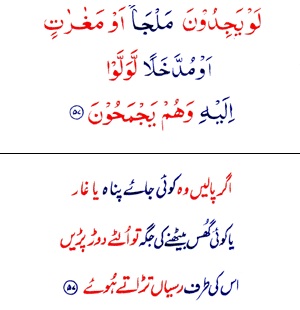 لَوْ يَجِدُوْنَ مَلْجَاً اَوْ مَغٰرٰتٍ
اَوْ مُدَّخَلًا لَّوَلَّوْا
اِلَيْهِ وَهُمْ يَجْمَحُوْنَ ﴿۵۷﴾
اگر پالیں وہ کوئی جائے پناہ یا غار
یا کوئی گُھس بیٹھنے کی جگہ تو اُلٹے دوڑ پڑیں
اس کی طرف رسیاں تڑاتے ہُوئے ﴿۵۷﴾